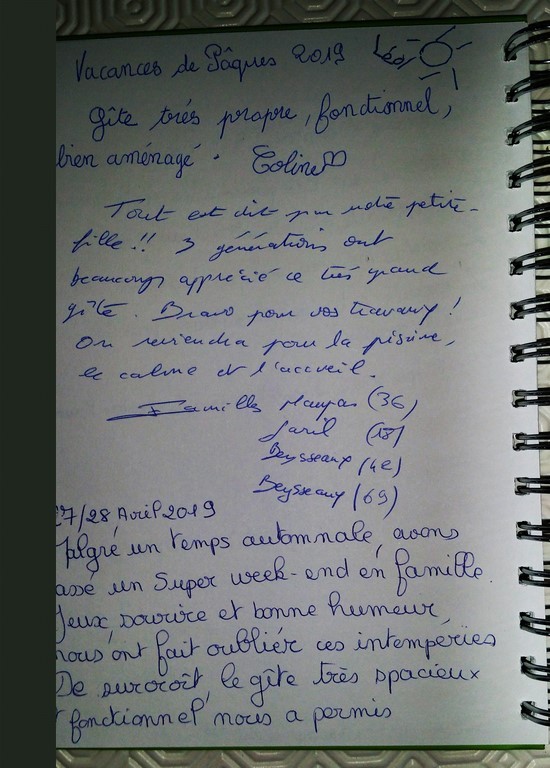 Vacances de Pâques 2019 Léo
Gîte trés propre, fonctionnel,
bien aménagé. Coline
Tout est dit par notre petite-
fille !! 3 générations ont
beaucoup apprécié ce très grand
gîte. Bravo pour vos travaux !
On reviendra pour la piscine,
le calme et l'accueil.
Familles (36)
(18)
Beysseaux (42)
Beysseaux (69)
27/28 Avril 2019
Malgré un temps automnale, avons
passé un Super week-end en famille.
Jeux sourire et bonne humeur
nous ont fait oublier ces intempéries
De surcroît, le gîte très spacieux
fonctionnel nous a permis